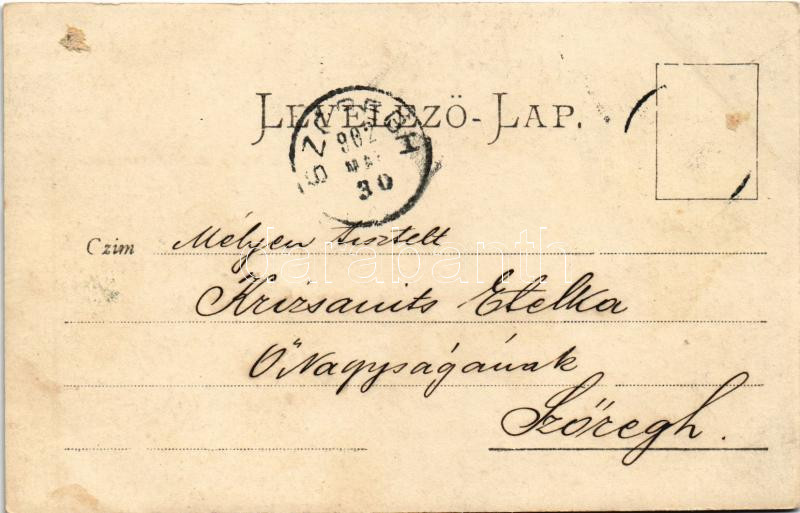 LEVELEZŐ-LAP.
902
30
Czim Mélyen tisztelt
Krizsanits Etelka
Ő Nagyságának
Szőregh.
darabanth